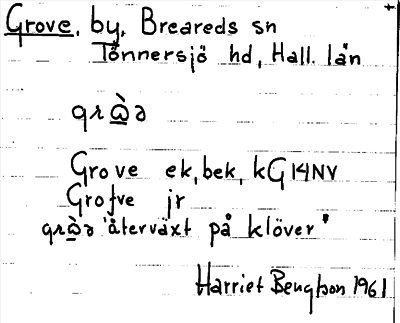 Grove, by, Breareds sn
Tönnersjö hd, Hall. län
grꜵ̀ə
Grove ek, bek, kG14NV
Grofve jr
grꜵ̀ə 'återväxt på klöver'
Harriet Bengtson 1961